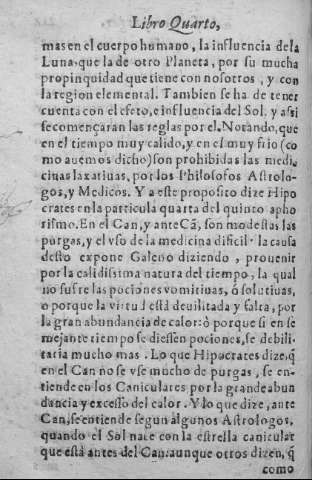 Libro Quarto,
mas en el cuerpo humano, la influencia dela
Luna, que la de otro Planeta, por su mucha
propinquidad que tiene con nosotros, y con
la region elemental. Tambien se ha de tener
cuenta con el efeto, e influencia del Sol. y assi
se començaran las reglas por el. Notando, que
en el tiempo muy calido, y en el muy frio (co
mo auemos dicho) son prohibidas las medi,
cinas laxatiuas, por los Philosofos Astrolo-
gos, y Medicos. Y a este proposito dize Hipo
crates en la particula quarta del quinto apho
rismo. En el Can, y ante Cã, son modestas las
purgas, y el vso de la medicina dificil· la causa
desto expone Galeno diziendo, prouenir
por la calidissima natura del tiempo, la qual
no sufre las pociones vomitiuas, ò solutiuas,
o porque la virtud està deuilitada y falta, por
la gran abundancia de calor: ò porque si en se
mejante tiempo se diessen pociones, se debili-
taria mucho mas. Lo que Hipocrates dize, q̃
en el Can no se vse mucho de purgas, se en-
tiende en los Caniculares por la grande abun
dancia y excesso del calor. Y lo que dize, ante
Can, se entiende segun algunos Astrologos,
quando el Sol nace con la estrella canicular
que està antes del Can: aunque otros dizen, q̃
como